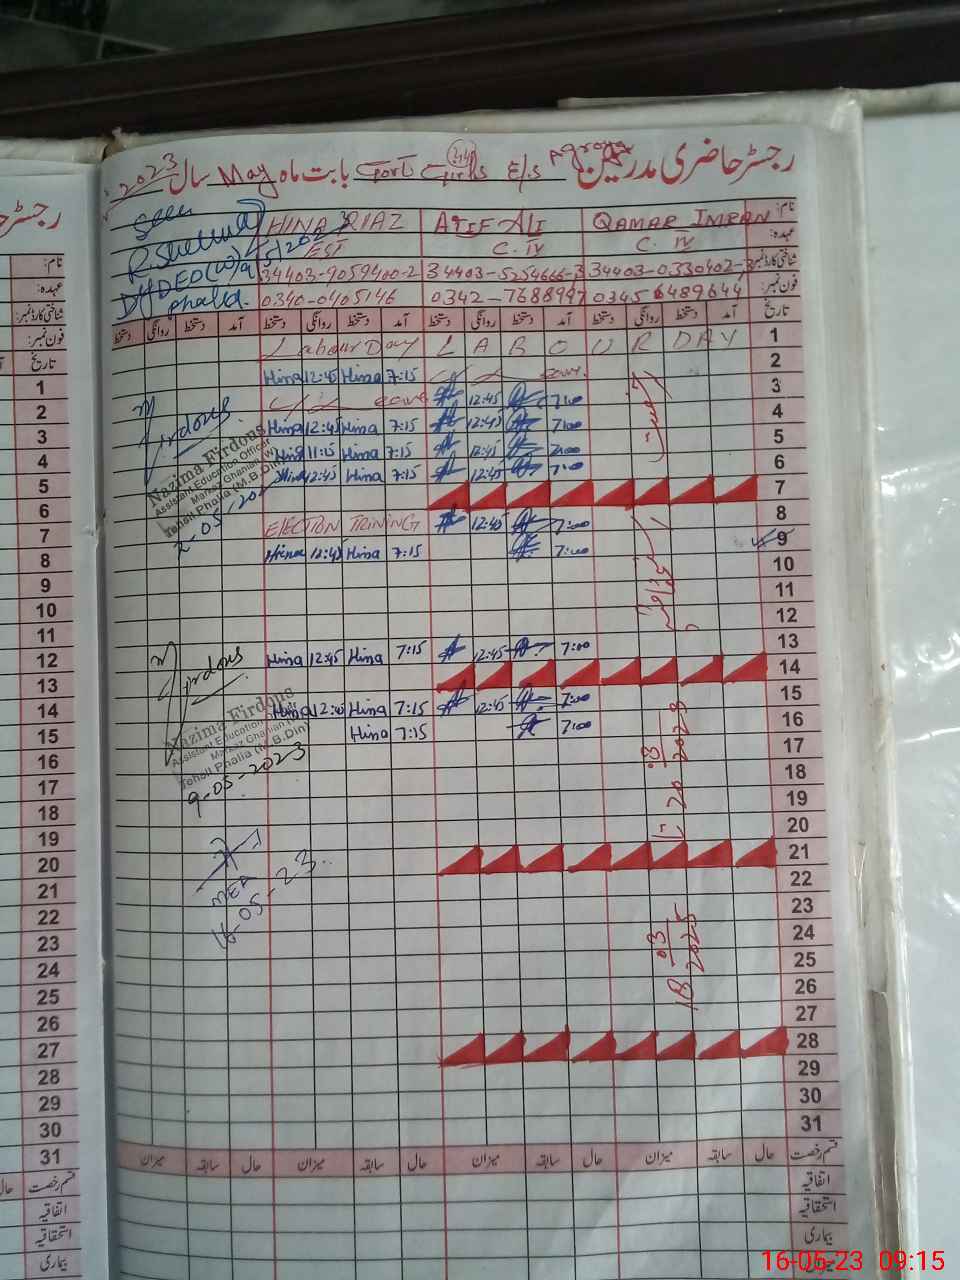 رجسٹر حاضری مدرسین Agroya E/S Girls Govt بابت ماہ May سال 2023
نام: QAMAR IMRAN ATIF ALI HINA RIAZ
عہدہ: C. IV C. IV EST
شناختی کارڈ نمبر: 34403-0330402-3 34403-5254666-3 34403-9059400-2
فون نمبر: 0345 6489644 0342-7688997 0340-0405146
Seen
DyDEO(W)
Phalia
تاریخ آمد دستخط روانگی دستخط آمد دستخط روانگی دستخط آمد دستخط روانگی دستخط
1 LABOUR DAY Labour Day
2 Hina 12:45 Hina 7:15
3 12:45 7:00
4 12:45 7:00 Hina 12:45 Hina 7:15
5 12:45 7:00 11:15 Hina 7:15
6 12:45 7:00 12:45 Hina 7:15
7
8 12:45 7:00 ELECTION TRINING
9 7:00 Hina 12:45 Hina 7:15
10
11
12
13 12:45 7:00 Hina 12:45 Hina 7:15
14
15 12:45 7:00 Hina 12:45 Hina 7:15
16 7:00 Hina 7:15
17
18
19
20
21
22
23
24
25
26
27
28
29
30
31
20 03 2023
18 03 2025
Firdous
Nazima Firdous
Assistant Education Officer
Markaz Ghanian (W)
Tehsil Phalia (M.B.Din)
2-05-20
Firdous
Nazima Firdous
Assistant Education Officer
Markaz Ghanian (W)
Tehsil Phalia (M.B.Din)
9-05-2023
MEA
16-05-23
قسم رخصت حال سابقہ میزان حال سابقہ میزان حال سابقہ میزان
اتفاقیہ
استحقاقیہ
بیماری
نام:
عہدہ:
شناختی کارڈ نمبر:
فون نمبر:
تاریخ
1
2
3
4
5
6
7
8
9
10
11
12
13
14
15
16
17
18
19
20
21
22
23
24
25
26
27
28
29
30
31
قسم رخصت حال
اتفاقیہ
استحقاقیہ
بیماری
16-05-23 09:15